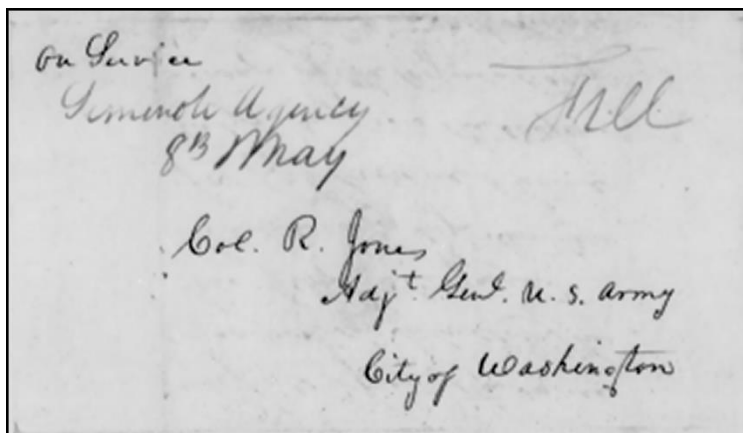 on Service
Seminole Agency
Free
8th May
Col. R. Jones
Adjt. Genl. U. S. Army
City of Washington